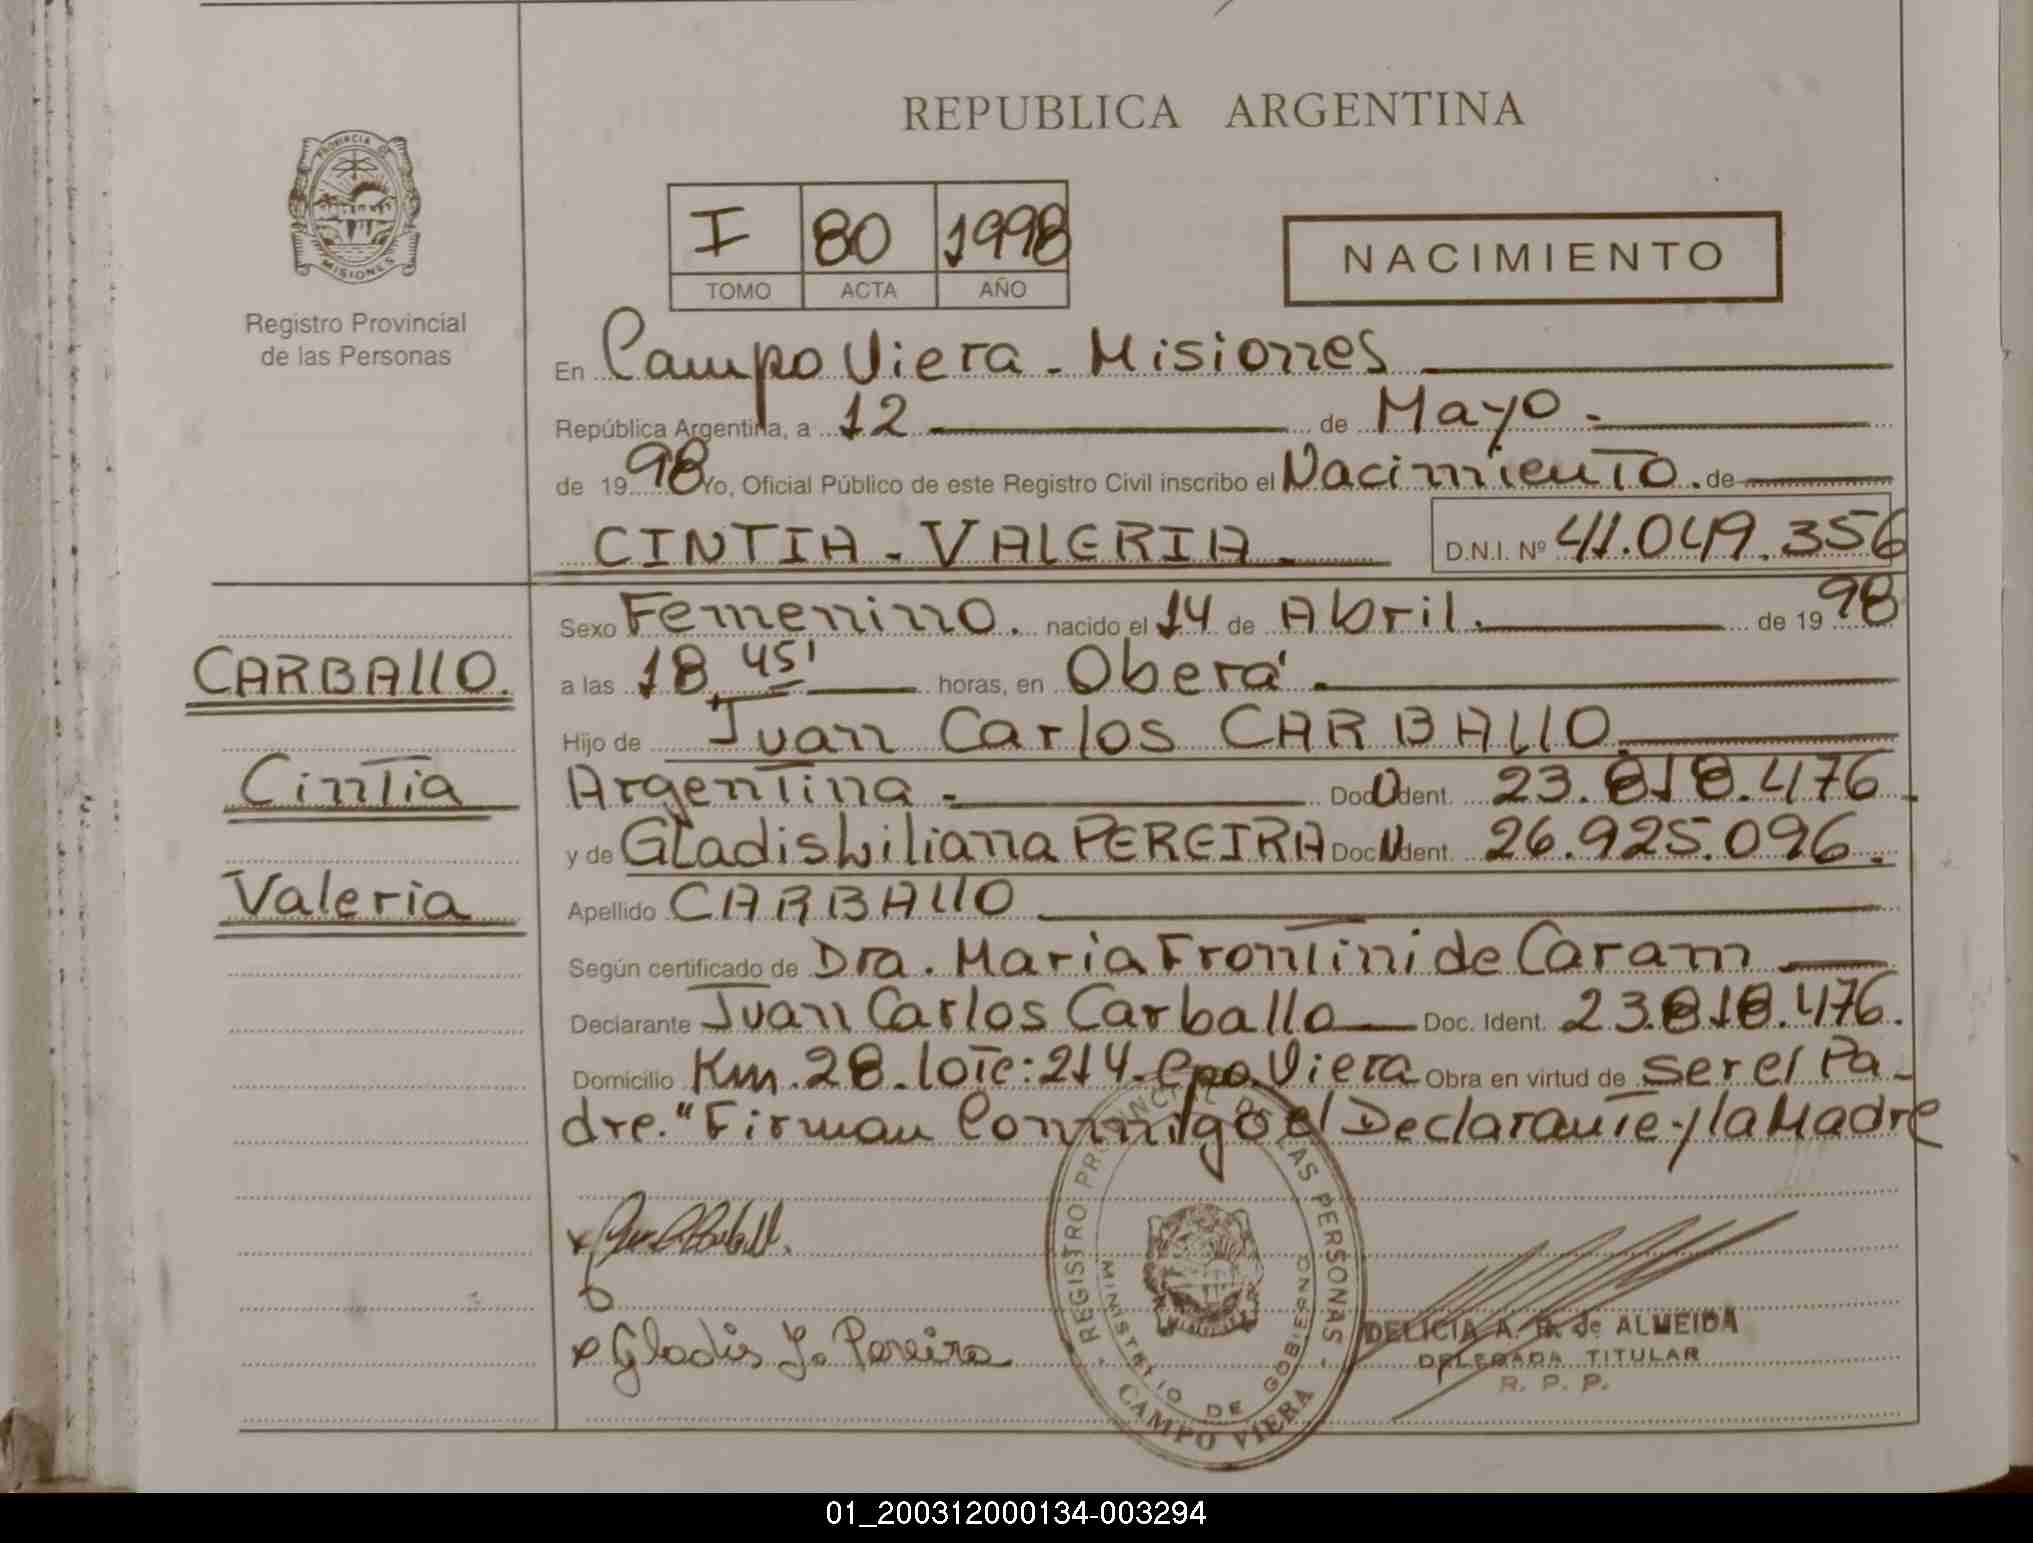 REPUBLICA ARGENTINA
PROVINCIA DE
MISIONES
Registro Provincial
de las Personas
I 80 1998
TOMO ACTA AÑO
NACIMIENTO
En Campo Viera - Misiones
República Argentina, a 12 de Mayo.
de 1998 Yo, Oficial Público de este Registro Civil inscribo el Nacimiento. de
CINTIA - VALERIA - D.N.I. Nº 41.049.356
Sexo Femenino. nacido el 14 de Abril. de 1998
CARBALLO.
a las 18,45' horas, en Oberá.
Hijo de Juan Carlos CARBALLO.
Cintia
Argentina - Doc. Ident. 23.818.476
y de Gladis Liliana PEREIRA Doc. Ident. 26.925.096.
Valeria
Apellido CARBALLO
Según certificado de Dra. Maria Frontini de Caram
Declarante Juan Carlos Carballo Doc. Ident. 23.818.476.
Domicilio Km. 28. lote: 214. Cpo. Viera Obra en virtud de ser el Pa-
dre. "Firman Conmigo el Declarante y la Madre
x Gladis L. Pereira
REGISTRO PROVINCIAL DE LAS PERSONAS
MINISTERIO DE GOBIERNO
CAMPO VIERA
DELICIA A. B. de ALMEIDA
DELEGADA TITULAR
R. P. P.
01_200312000134-003294